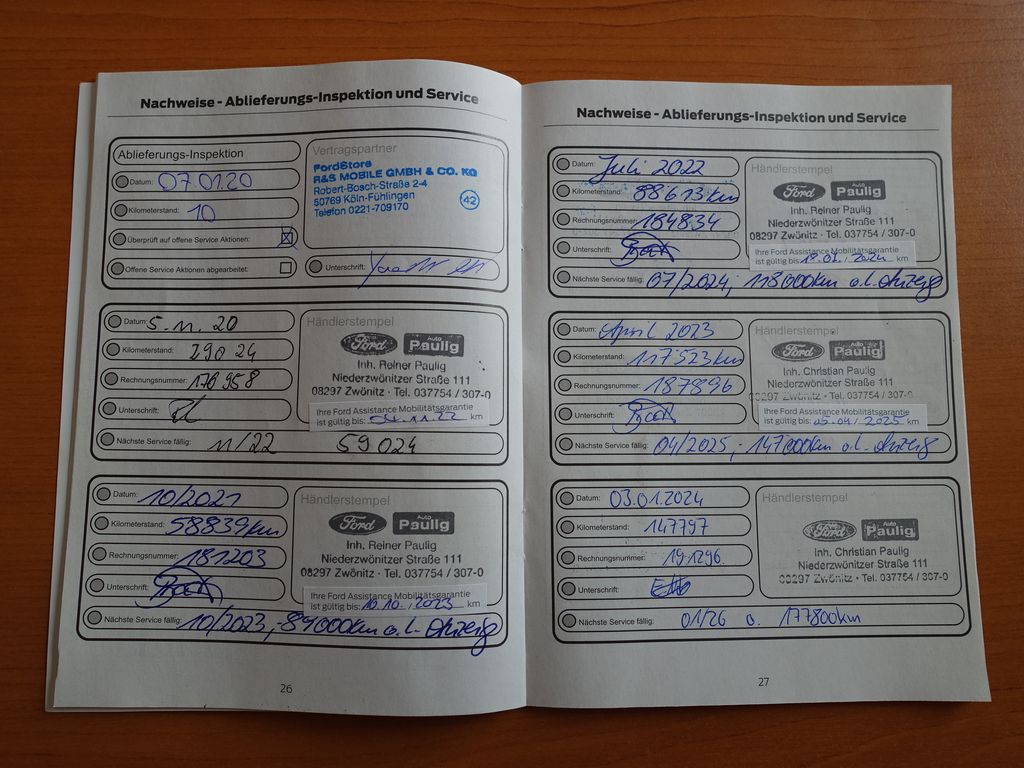 Nachweise - Ablieferungs-Inspektion und Service
Ablieferungs-Inspektion
Datum: 07.01.20
Kilometerstand: 10
Überprüft auf offene Service Aktionen:
Offene Service Aktionen abgearbeitet:
Vertragspartner
FordStore
R&S MOBILE GMBH & CO. KG
Robert-Bosch-Straße 2-4
50769 Köln-Fühlingen
Telefon 0221-709170
42
Unterschrift:
Datum: 5.11.20
Kilometerstand: 29024
Rechnungsnummer: 176958
Unterschrift:
Händlerstempel
Ford Auto Paulig
Inh. Reiner Paulig
Niederzwönitzer Straße 111
08297 Zwönitz · Tel. 037754 / 307-0
Ihre Ford Assistance Mobilitätsgarantie
ist gültig bis: 04.11.22 km
Nächste Service fällig: 11/22 59024
Datum: 10/2021
Kilometerstand: 58839km
Rechnungsnummer: 181203
Unterschrift:
Händlerstempel
Ford Auto Paulig
Inh. Reiner Paulig
Niederzwönitzer Straße 111
08297 Zwönitz · Tel. 037754 / 307-0
Ihre Ford Assistance Mobilitätsgarantie
ist gültig bis: 10.10./2023 km
Nächste Service fällig: 10/2023,-89000km o.l. Anzeig
26
Nachweise - Ablieferungs-Inspektion und Service
Datum: Juli 2022
Kilometerstand: 88613km
Rechnungsnummer: 184834
Unterschrift:
Händlerstempel
Ford Auto Paulig
Inh. Reiner Paulig
Niederzwönitzer Straße 111
08297 Zwönitz · Tel. 037754 / 307-0
Ihre Ford Assistance Mobilitätsgarantie
ist gültig bis: 2024 km
Nächste Service fällig: 07/2024, 118000km o.l. Anzeig
Datum: April 2023
Kilometerstand: 117523km
Rechnungsnummer: 187896
Unterschrift:
Händlerstempel
Ford Auto Paulig
Inh. Christian Paulig
Niederzwönitzer Straße 111
08297 Zwönitz · Tel. 037754 / 307-0
Ihre Ford Assistance Mobilitätsgarantie
ist gültig bis: 05.04/2025 km
Nächste Service fällig: 04/2025,-147000km o.l. Anzeig
Datum: 03.01.2024
Kilometerstand: 147797
Rechnungsnummer: 191296
Unterschrift:
Händlerstempel
Ford Auto Paulig
Inh. Christian Paulig
Niederzwönitzer Straße 111
08297 Zwönitz · Tel. 037754 / 307-0
Nächste Service fällig: 01/26 o. 177800km
27